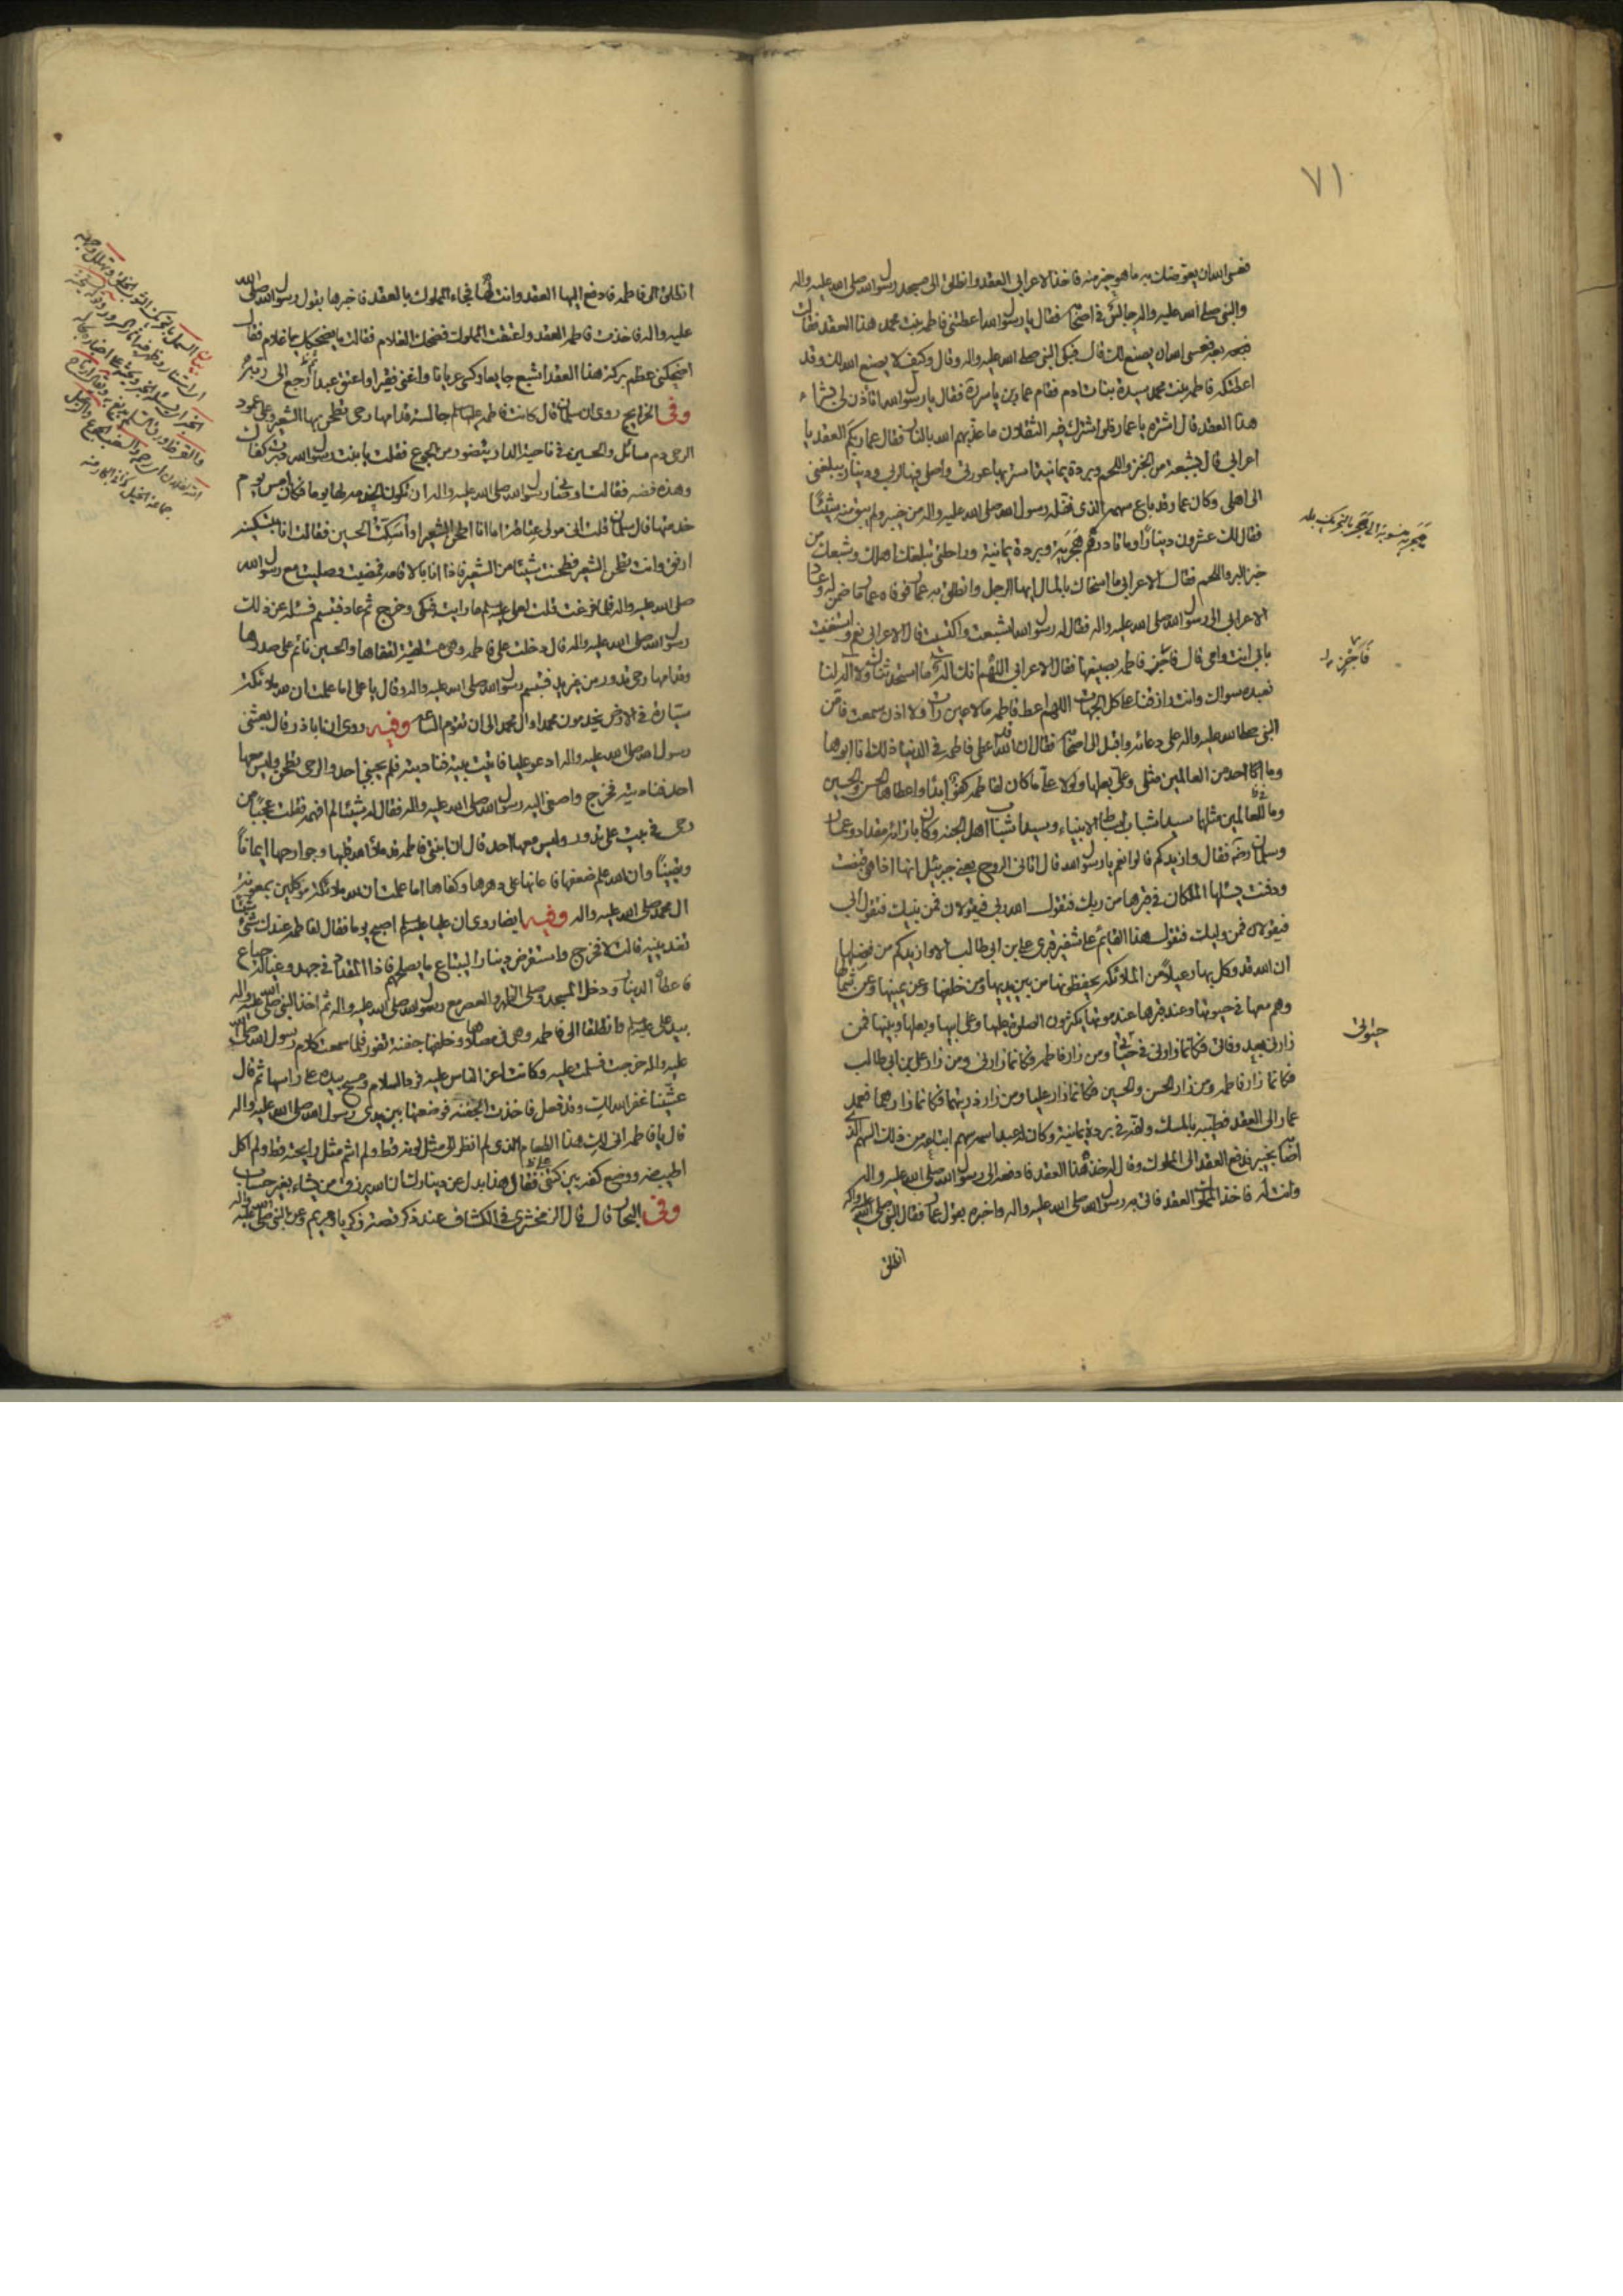 ٧١
فعسى الله ان يعوضك به ما هو خير منه فاخذ الاعرابي العقد وانطلق الى مسجد رسول الله صلى الله عليه واله
والنبي صلى الله عليه واله جالس في اصحابه فقال يا رسول الله اعطتني فاطمه بنت محمد هذا العقد فقالت
بعه فعسى الله ان يصنع لك قال فبكى النبي صلى الله عليه واله وقال وكيف لا يصنع الله لك وقد
اعطتكه فاطمه بنت محمد سيدة بنات ادم فقام عمار بن ياسر ره فقال يا رسول الله اتاذن لي بشراء
هذا العقد قال اشتره يا عمار فلو اشترك فيه الثقلان ما عذبهم الله بالنار فقال عمار بكم العقد يا
اعرابي قال بشبعة من الخبز واللحم وبردة يمانية استر بها عورتي واصلي فيها لربي ودينار يبلغني
الى اهلي وكان عمار قد باع سهمه الذي نفله رسول الله صلى الله عليه واله من خيبر ولم يبق منه شيئا
فقال لك عشرون دينارا وماتا درهم هجرية وبردة يمانية وراحلتي تبلغك اهلك وشبعك من
خبز البر واللحم فقال الاعرابي ما اسخاك بالمال ايها الرجل وانطلق به عمار فوفاه عمار ما ضمن له وعاد
الاعرابي الى رسول الله صلى الله عليه واله فقال له رسول الله اشبعت واكتسيت قال الاعرابي نعم واستغنيت
بابي انت وامي قال فاجز فاطمه بصنيعها فقال الاعرابي اللهم انك اله ما استحدثناك ولا اله لنا
نعبده سواك وانت رازقنا على كل الجهات اللهم اعط فاطمه ما لا عين رات ولا اذن سمعت فامن
النبي صلى الله عليه واله على دعائه واقبل الى اصحابه فقال ان الله قد اعطى فاطمه في الدنيا ذلك انا ابوها
وما احد من العالمين مثلي وعلي بعلها ولولا علي ما كان لفاطمه كفو ابدا واعطاها الحسن والحسين
وما للعالمين مثلهما سيدا شباب اسباط الانبياء وسيدا شباب اهل الجنه وكان بازائه مقداد وعمار
وسلمان رضه فقال وازيدكم قالوا نعم يا رسول الله قال اتاني الروح يعني جبرئيل انها اذا هي قبضت
ودفنت يسالها الملكان في قبرها من ربك فتقول الله ربي فيقولان فمن نبيك فتقول ابي
فيقولان فمن وليك فتقول هذا القائم على شفير قبري علي بن ابي طالب الا وازيدكم من فضلها
ان الله قد وكل بها رعيلا من الملائكه يحفظونها من بين يديها ومن خلفها وعن يمينها وعن شمالها
وهم معها في حيوتها وعند قبرها عند موتها يكثرون الصلوة عليها وعلى ابيها وبعلها وبنيها فمن
زارني بعد وفاتي فكانما زارني في حيوتي ومن زار فاطمه فكانما زارني ومن زار علي بن ابي طالب
فكانما زار فاطمه ومن زار الحسن والحسين فكانما زار عليا ومن زار ذريتهما فكانما زارهما فعمد
عمار الى العقد فطيبه بالمسك ولفه في بردة يمانية وكان له عبد اسمه سهم ابتاعه من ذلك السهم الذي
اصابه بخيبر فدفع العقد الى المملوك وقال له خذ هذا العقد فادفعه الى رسول الله صلى الله عليه واله
وانت له فاخذ المملوك العقد فاتى به رسول الله صلى الله عليه واله واخبره بقول عمار فقال النبي صلى الله عليه واله
انطلق
هجرية منسوبة الى هجر بالتحريك بلد
فاجز
حيوتي
انطلق الى فاطمه فادفع اليها العقد وانت لها فجاء المملوك بالعقد فاخبرها بقول رسول الله صلى الله
عليه واله فاخذت فاطمه العقد واعتقت المملوك فضحك الغلام فقالت ما يضحكك يا غلام فقال
اضحكني عظم بركة هذا العقد اشبع جايعا وكسى عريانا واغنى فقيرا واعتق عبدا ثم رجع الى ربه
وفي الخرايج روى ان سلمان قال كانت فاطمه عليها السلم جالسة قدامها رحى تطحن بها الشعير وعلى عمود
الرحى دم سائل والحسين في ناحية الدار يتضور من الجوع فقلت يا بنت رسول الله دبرت كفاك
وهذه فضه فقالت اوصاني رسول الله صلى الله عليه واله ان تكون الخدمة لها يوما فكان امس يوم
خدمتها قال سلمان قلت اني مولى عتاقة اما انا اطحن الشعير او اسكت الحسين فقالت انا بتسكينه
ارفق وانت تطحن الشعير فطحنت شيئا من الشعير فاذا انا بالاقامه فمضيت وصليت مع رسول الله
صلى الله عليه واله فلما فرغت قلت لعلي عليه السلم ما رايت فبكى وخرج ثم عاد فتبسم فسئله عن ذلك
رسول الله صلى الله عليه واله قال دخلت على فاطمه وهي مستلقية لقفاها والحسين نائم على صدرها
وقدامها رحى تدور من غير يد فتبسم رسول الله صلى الله عليه واله وقال يا علي اما علمت ان لله ملائكة
سيارة في الارض يخدمون محمدا وال محمد الى ان تقوم الساعة وفيه روى ان ابا ذر قال بعثني
رسول الله صلى الله عليه واله ادعو عليا فاتيت بيته فناديته فلم يجبني احد والرحى تطحن وليس معها
احد فناديته فخرج واصغى اليه رسول الله صلى الله عليه واله فقال له شيئا لم افهمه فقلت عجبا من
رحى في بيت علي تدور وليس معها احد قال ان ابنتي فاطمه قد ملا الله قلبها وجوارحها ايمانا
ويقينا وان الله علم ضعفها فاعانها على دهرها وكفاها اما علمت ان لله ملائكة موكلين بمعونة
ال محمد صلى الله عليه واله وفيه ايضا روى ان عليا عليه السلم اصبح يوما فقال لفاطمه عندك شيء
تغدينيه قالت لا فخرج واستقرض دينارا ليبتاع ما يصلحهم فاذا المقداد في جهد وعياله جياع
فاعطاه الدينار ودخل المسجد وصلى الظهر والعصر مع رسول الله صلى الله عليه واله ثم اخذ النبي صلى الله عليه واله
بيد علي عليه السلم وانطلقا الى فاطمه وهي في مصلاها وخلفها جفنة تفور فلما سمعت كلام رسول الله صلى الله
عليه واله خرجت فسلمت عليه وكانت اعز الناس عليه فرد السلام ومسح بيده على راسها ثم قال
عشينا غفر الله لك وقد فعل فاخذت الجفنه فوضعتها بين يدي رسول الله صلى الله عليه واله
قال يا فاطمه انى لك هذا الطعام الذي لم انظر الى مثل لونه قط ولم اشم مثل رايحته قط ولم اكل
اطيب منه ووضع كفه بين كتفي علي فقال هذا بدل عن دينارك ان الله يرزق من يشاء بغير حساب
وفي البحار قال قال الزمخشري في الكشاف عند ذكر قصة زكريا ومريم وعن النبي صلى الله عليه واله